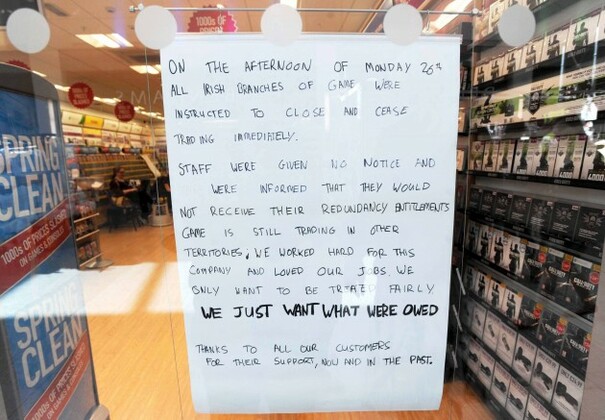 1000s OF
ON THE AFTERNOON OF MONDAY 26TH
ALL IRISH BRANCHES OF GAME WERE
INSTRUCTED TO CLOSE AND CEASE
TRADING IMMEDIATELY.
STAFF WERE GIVEN NO NOTICE AND
WERE INFORMED THAT THEY WOULD
NOT RECEIVE THEIR REDUNDANCY ENTITLEMENTS
GAME IS STILL TRADING IN OTHER
TERRITORIES; WE WORKED HARD FOR THIS
COMPANY AND LOVED OUR JOBS. WE
ONLY WANT TO BE TREATED FAIRLY
WE JUST WANT WHAT WERE OWED
THANKS TO ALL OUR CUSTOMERS
FOR THEIR SUPPORT, NOW AND IN THE PAST.
SPRING
CLEAN
1000s OF PRICES SLASHED
ON GAMES & CONSOLES
SPRING
CLEAN
1000s OF PRICES SLASHED
ON GAMES &